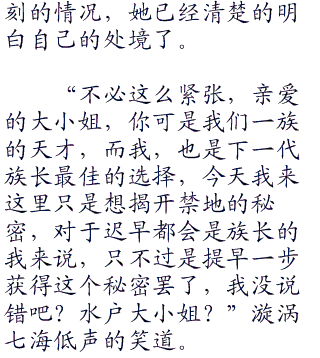 刻的情况，她已经清楚的明
白自己的处境了。
“不必这么紧张，亲爱
的大小姐，你可是我们一族
的天才，而我，也是下一代
族长最佳的选择，今天我来
这里只是想揭开禁地的秘
密，对于迟早都会是族长的
我来说，只不过是提早一步
获得这个秘密罢了，我没说
错吧？水户大小姐？”漩涡
七海低声的笑道。